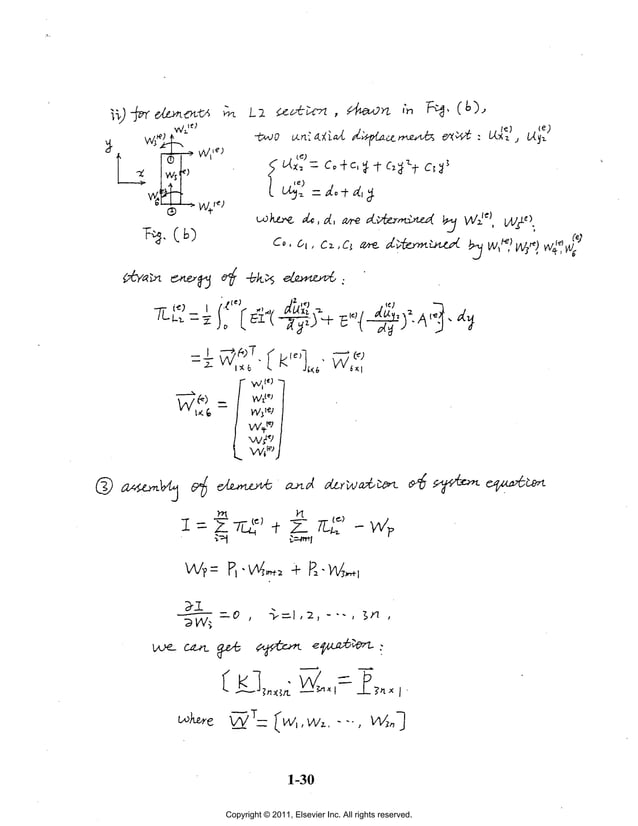 ii) for elements in L2 section, shown in Fig. (b),
two uniaxial displacements exist : Ux₂^(e), Uy₂^(e)
{ Ux₂^(e) = C₀ + C₁y + C₂y² + C₃y³
Uy₂^(e) = d₀ + d₁y
where d₀, d₁ are ditermined by W₂^(e), W₅^(e).
C₀, C₁, C₂, C₃ are ditermined by W₁^(e), W₃^(e), W₄^(e), W₆^(e)
y
x
W₂^(e)
W₃^(e)
① → W₁^(e)
W₅^(e)
W₆
② W₄^(e)
Fig. (b)
strain energy of this element :
π_L2^(e) = ½ ∫₀^l^(e) [ EI^(e) ( d²Ux₂^(e) / dy² )² + E^(e) ( dUy₂^(e) / dy )² · A^(e) ] · dy
= ½ W⃗^(e)T_1×6 · [K^(e)]_6×6 · W⃗^(e)_6×1
W⃗^(e)_1×6 = [ W₁^(e)
W₂^(e)
W₃^(e)
W₄^(e)
W₅^(e)
W₆^(e) ]
③ assembly of element and derivation of system equation
I = Σ_{i=1}^{m} π_L1^(e) + Σ_{i=m+1}^{n} π_L2^(e) − Wp
Wp = P₁ · W₃ₘ₊₂ + P₂ · W₃ₘ₊₁
∂I / ∂Wᵢ = 0 , i = 1, 2, ···, 3n ,
we can get system equation :
[K]_3n×3n · W⃗_3n×1 = P⃗_3n×1 .
where W⃗^T = [W₁, W₂, ···, W₃ₙ]
1-30
Copyright © 2011, Elsevier Inc. All rights reserved.